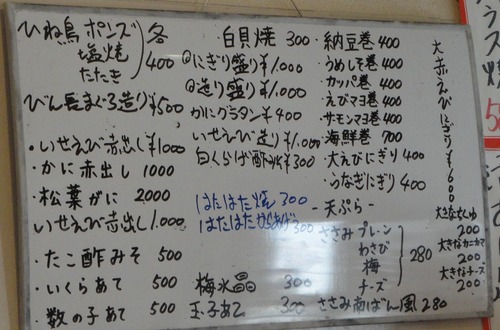 ひね鳥 ポンズ 各
塩焼 400
たたき
びん長まぐろ造り ¥500
・いせえび赤出し ¥1000
・かに赤出し 1000
・松葉がに 2000
いせえび赤出し 1.000
・たこ酢みそ 500
・いくらあて 500
・数の子あて 500
白貝焼 300
@にぎり盛り ¥1.000
@造り盛り ¥1.000
かにグラタン ¥400
いせえび造り ¥1.000
白くらげ酢物 ¥300
はたはた焼 300
はたはたからあげ 300
梅水晶 300
玉子あて 300
・納豆巻 400
・うめしそ巻 400
・カッパ巻 400
・えびマヨ巻 400
・サーモンマヨ巻 400
・海鮮巻 700
・大えびにぎり 400
・うなぎにぎり 400
-天ぷら-
ささみ プレーン
わさび
梅
チーズ
280
ささみ南ばん風 280
大赤えびにぎり ¥600
200
大きなカニカマ
200
大きなチーズ
200